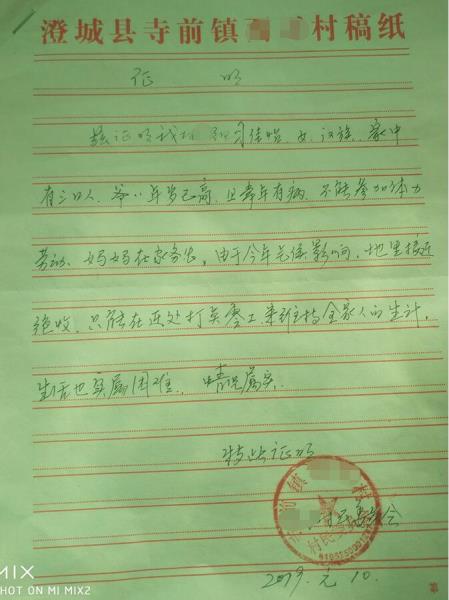 澄城县寺前镇 村稿纸
证 明
兹证明我村 习佳晗,女,汉族,家中
有三口人,爷八年岁已高,且常年有病,不能参加体力
劳动,妈妈在家务农,由于今年气候影响,地里接近
绝收,只能在近处打点零工来维持全家人的生计,
生活也实属困难, 情况属实.
特此证明
村民委员会
2019. 元 10.
第
MIX
SHOT ON MI MIX2